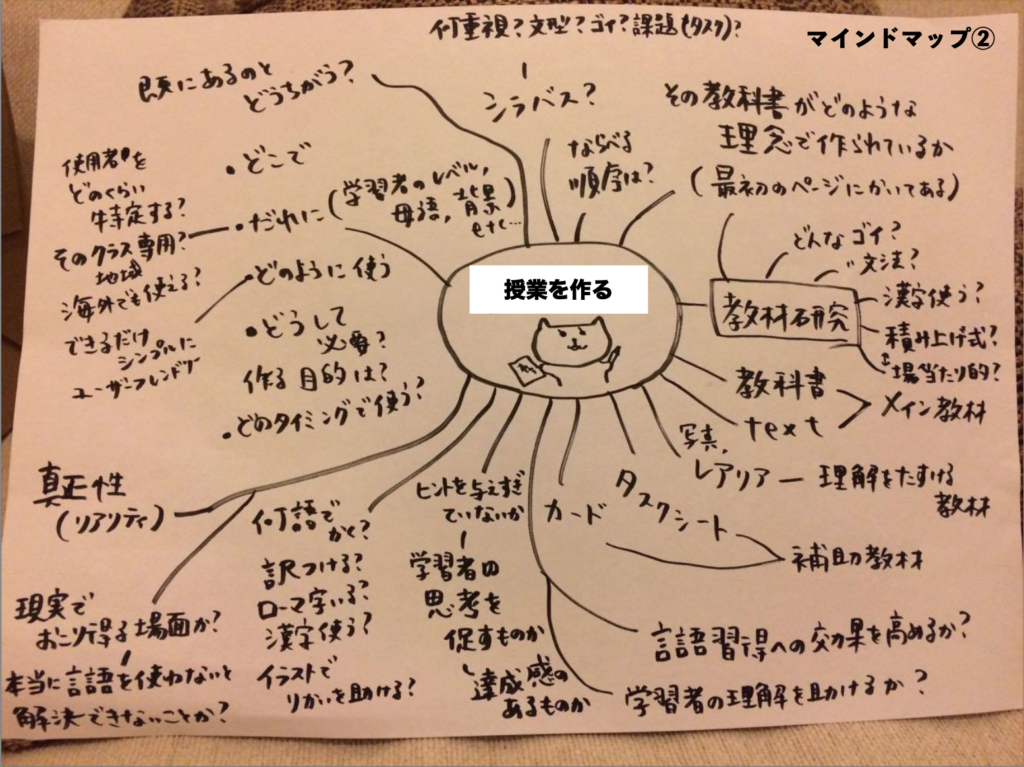 マインドマップ②
何重視?文型?ゴイ?課題(タスク)?
シラバス?
ならべる
順序は?
既にあるのと
どうちがう?
その教科書がどのような
理念で作られているか
(最初のページにかいてある)
・どこで
・だれに
(学習者のレベル,
母語,背景
etc…
使用者を
どのくらい
特定する?
そのクラス専用?
地域
海外でも使える?
・どのように使う
できるだけ
シンプルに
ユーザーフレンドリー
・どうして
必要?
作る目的は?
・どのタイミングで使う?
授業を作る
教材研究
どんなゴイ?
〃文法?
漢字使う?
積み上げ式?
場当たり的?
教科書
text
メイン教材
写真,
レアリア ー 理解をたすける
教材
タスクシート
カード
補助教材
言語習得への効果を高めるか?
学習者の理解を助けるか?
ヒントを与えすぎ
ていないか
学習者の
思考を
促すものか
達成感の
あるものか
何語で
かく?
訳つける?
ローマ字いる?
漢字使う?
イラストで
りかいを助ける?
真正性
(リアリティ)
現実で
おこり得る場面か?
本当に言語を使わないと
解決できないことか?